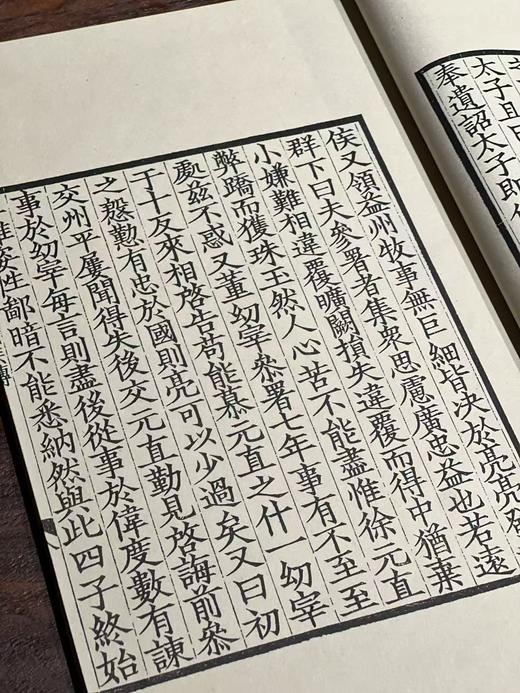 太子且曰
奉遺詔太子即
侯又領益州牧事無巨細皆决於亮亮發
群下曰夫叅署者集衆思慮廣忠益也若遠
小嫌難相違覆曠闕損失違覆而得中猶棄
弊蹻而獲珠玉然人心苦不能盡惟徐元直
處兹不惑又董㓜宰叅署七年事有不至至
于十友來相啓告苟能慕元直之什一㓜宰
之慇懃有忠於國則亮可以少過矣又曰初
交州平屢聞得失後交元直勤見啓誨前叅
事於㓜宰每言則盡後從事於偉度數有諫
雖姿性鄙暗不能悉納然與此四子終始